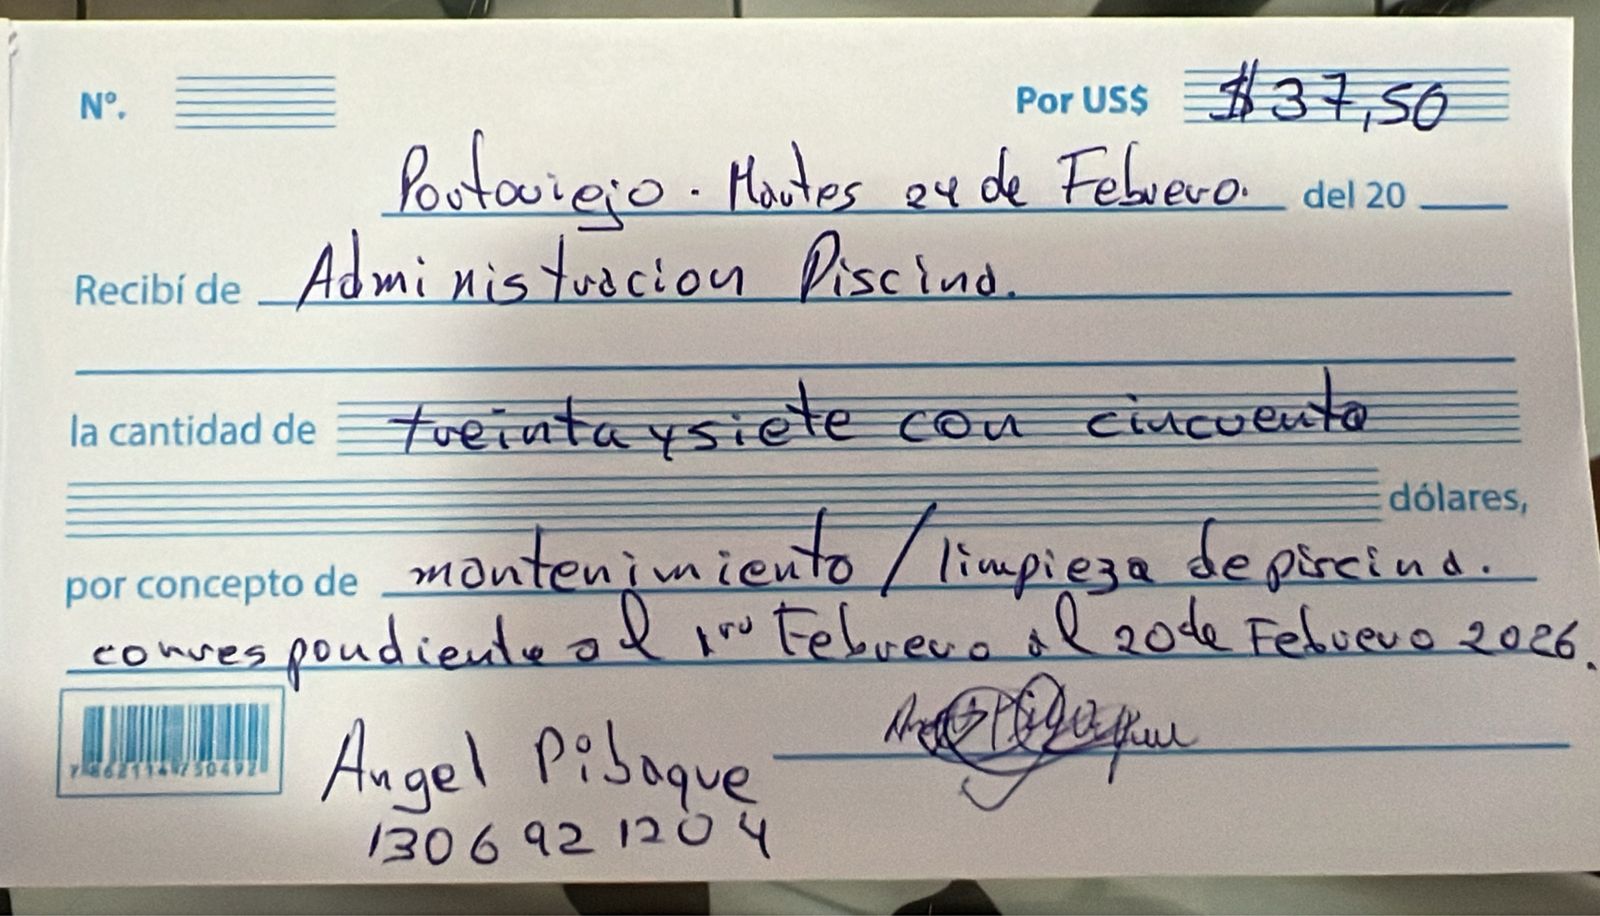 Nº. Por US$ $37,50
Portoviejo. Martes 24 de Febrero. del 20
Recibí de Administracion Piscina.
la cantidad de treinta y siete con cincuenta
dólares,
por concepto de mantenimiento / limpieza de piscina.
correspondiente al 1ro Febrero al 20 de Febrero 2026.
Angel Pibaque
1306921204